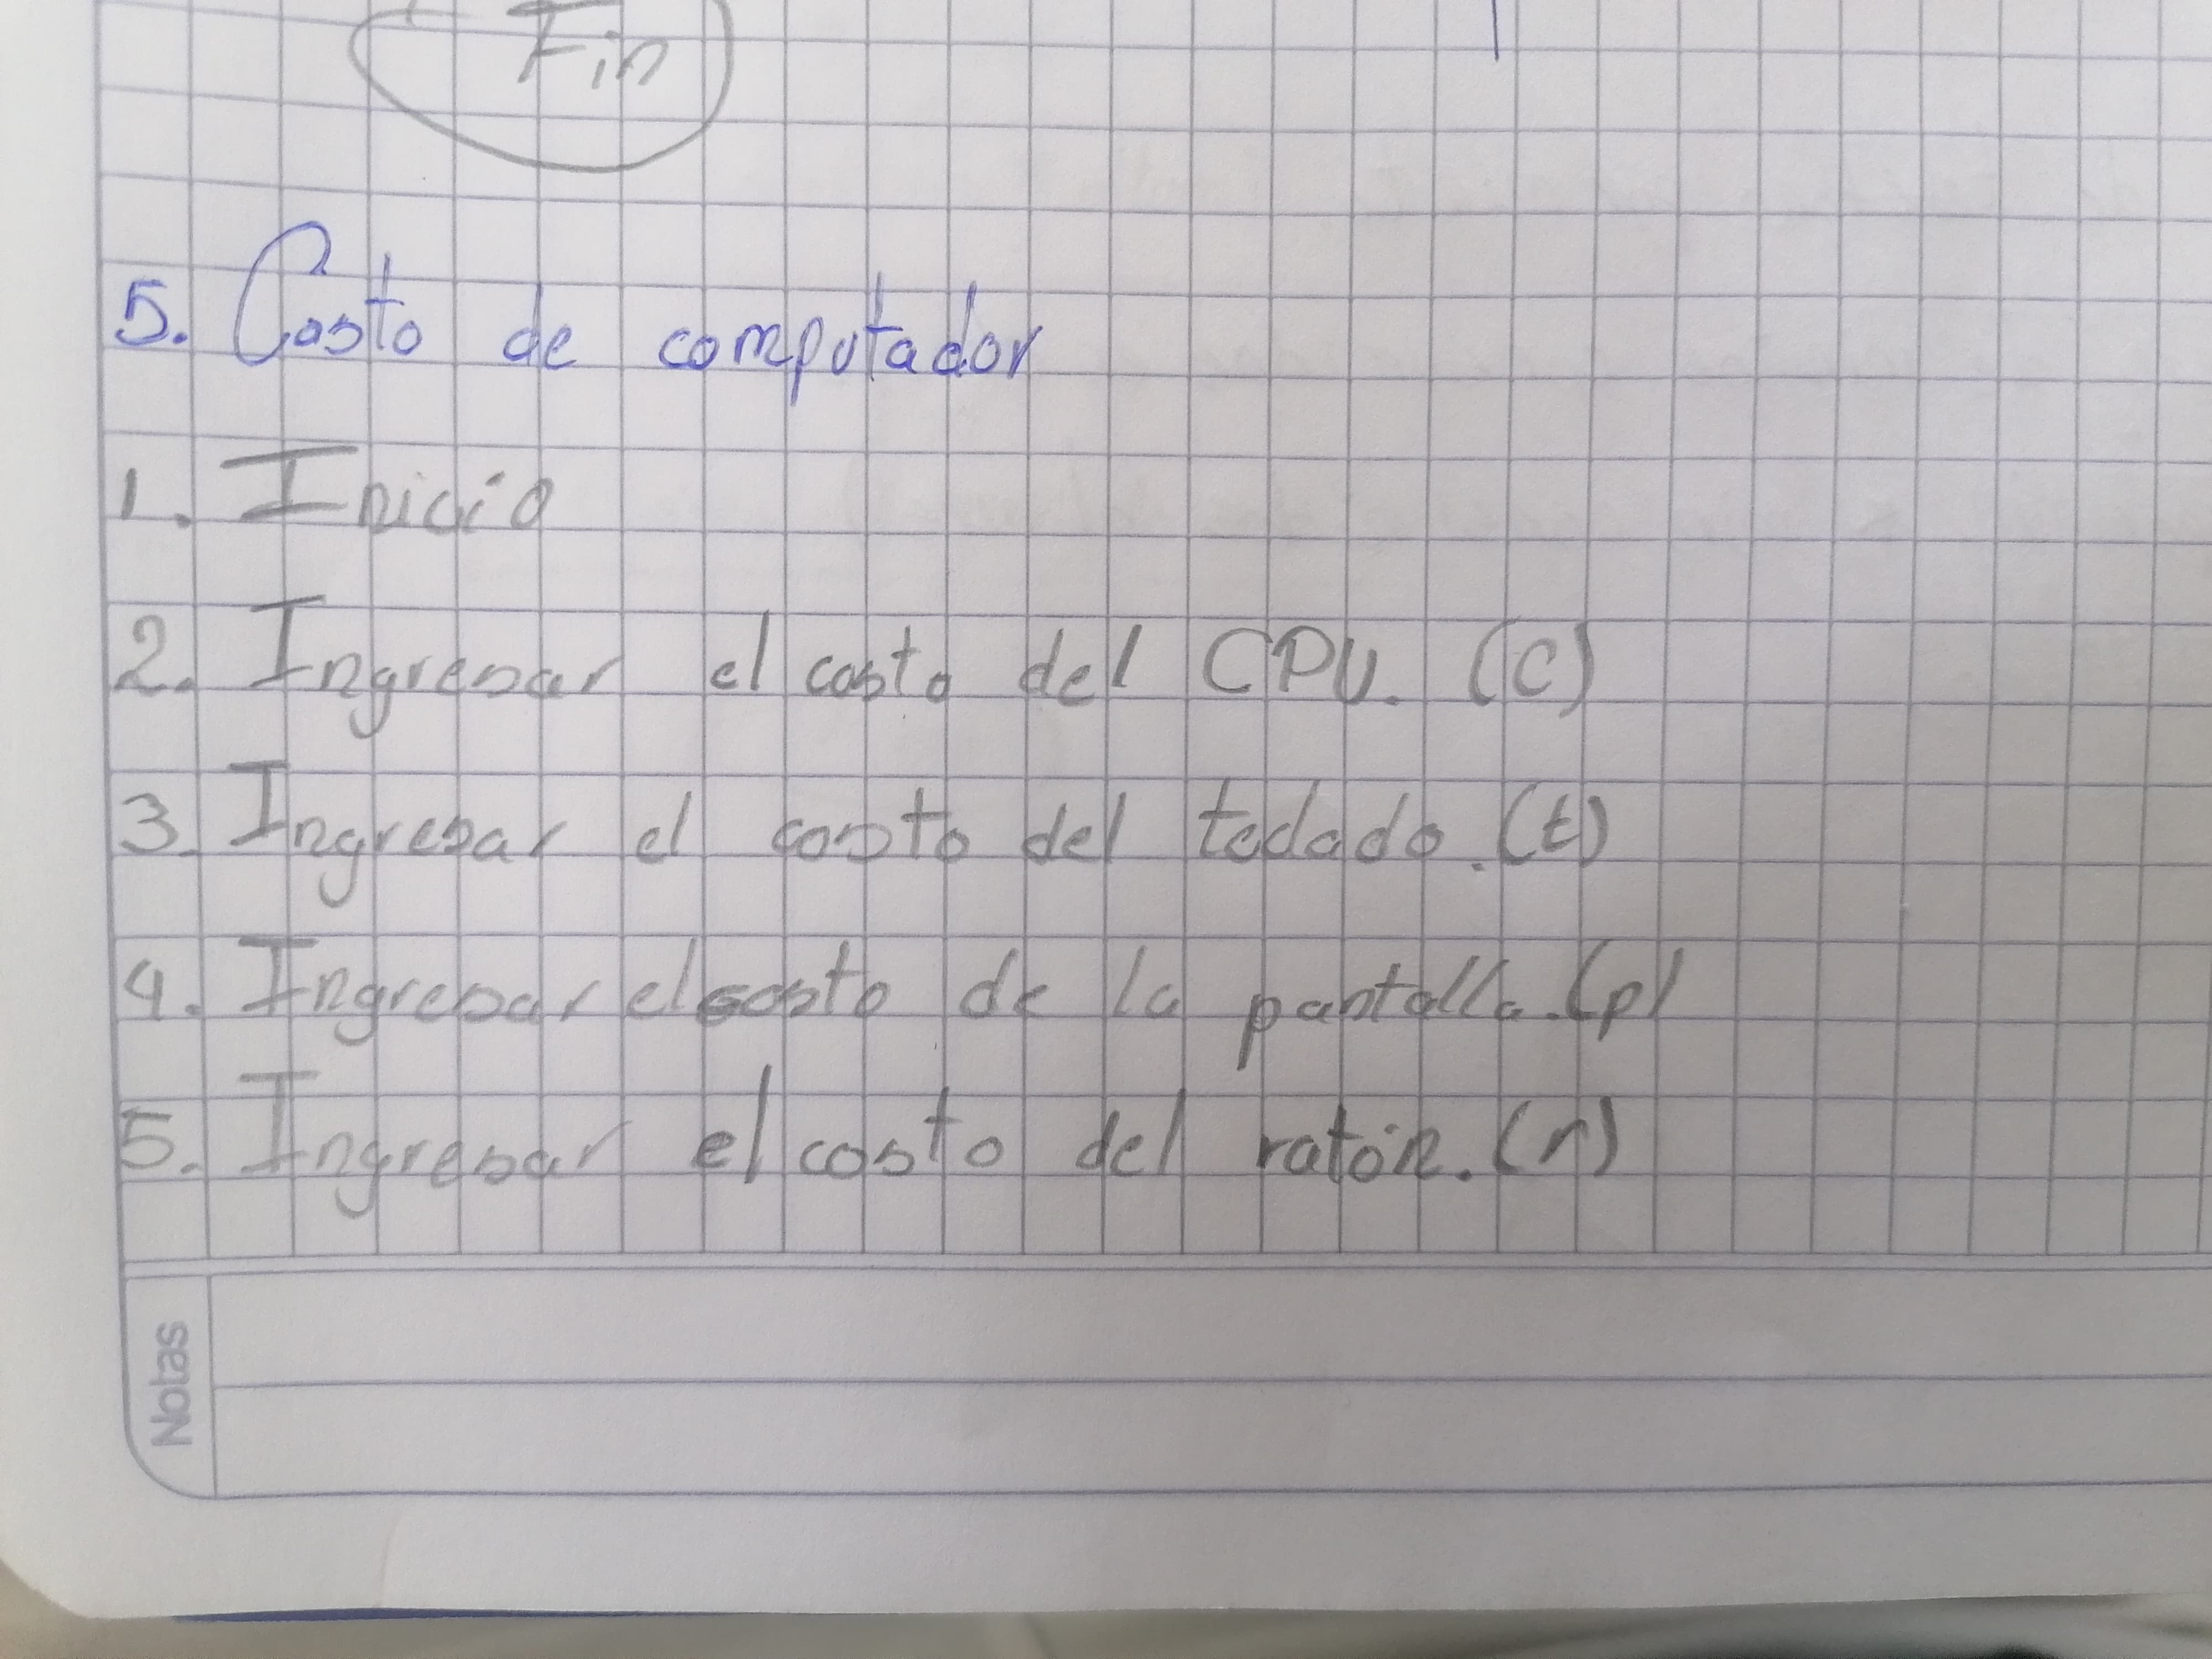 Fin
5. Costo de computador
1. Inicio
2. Ingresar el costo del CPU. (C)
3. Ingresar el costo del teclado. (t)
4. Ingresar el costo de la pantalla. (p)
5. Ingresar el costo del ratón. (r)
Notas